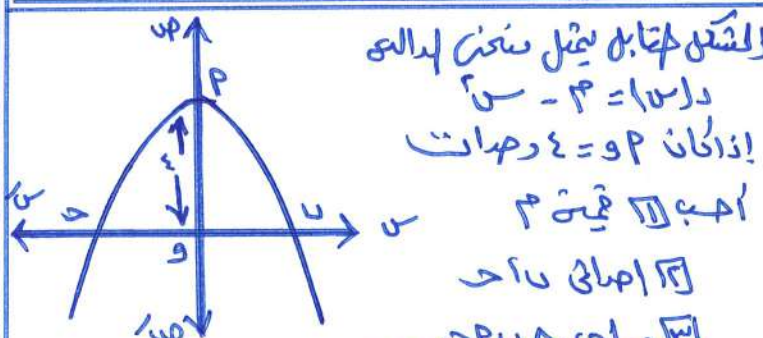 الشكل المقابل يمثل منحنى الدالة
د(س) = م - س²
إذا كان أ و = ٤ وحدات
أحسب [١] قيمة م
[٢] إحداثى ب ، حـ
[٣]
ص
أ
٤
سَ
حـ
ب
س
و
صَ